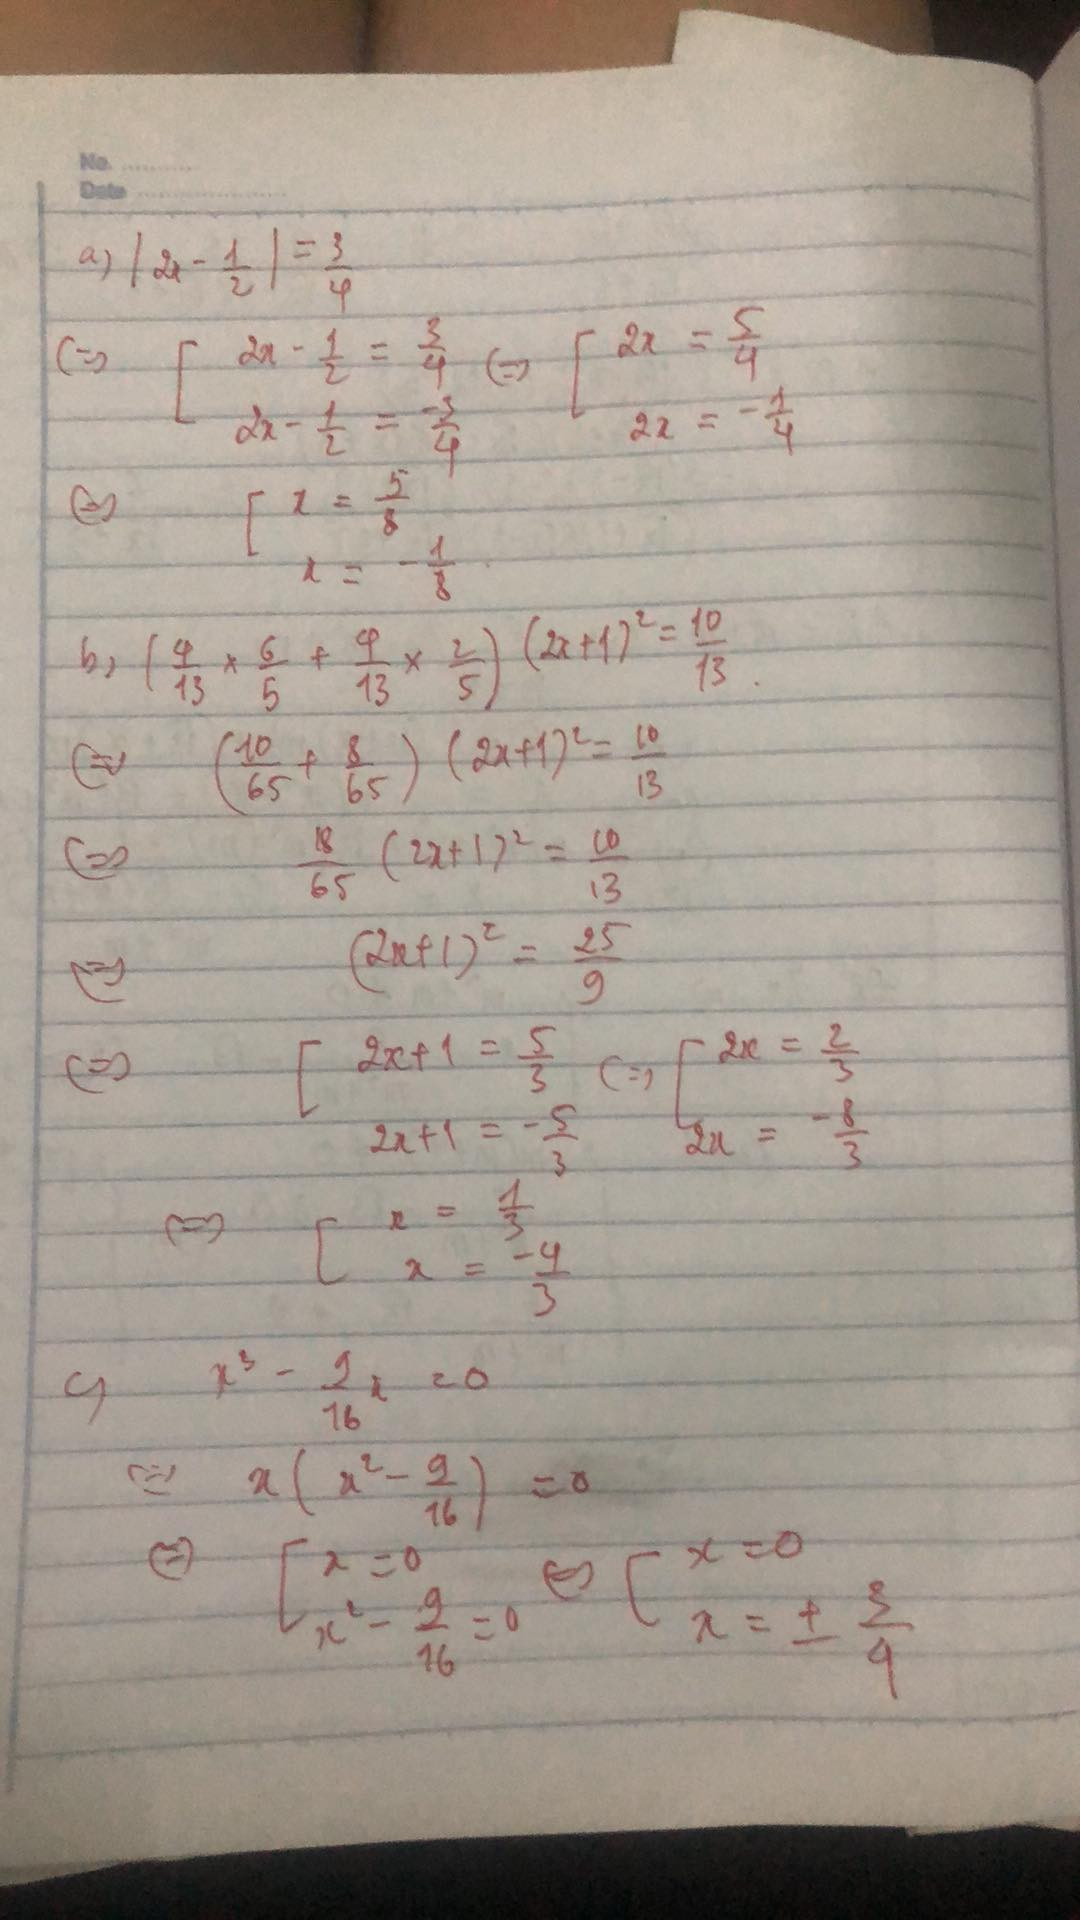 No. ..........
Date ..........................
a) |2x - 1/2| = 3/4
(=) [ 2x - 1/2 = 3/4 (=) [ 2x = 5/4
2x - 1/2 = -3/4 2x = -1/4
(=) [ x = 5/8
x = -1/8
b, (4/13 × 6/5 + 4/13 × 2/5) (2x+1)² = 10/13.
(=) (10/65 + 8/65) (2x+1)² = 10/13
(=) 18/65 (2x+1)² = 10/13
(=) (2x+1)² = 25/9
(=) [ 2x+1 = 5/3 (=) [ 2x = 2/3
2x+1 = -5/3 2x = -8/3
(=) [ x = 1/3
x = -4/3
c) x³ - 9/16 x = 0
(=) x(x² - 9/16) = 0
(=) [ x = 0 (=) [ x = 0
x² - 9/16 = 0 x = ± 3/4